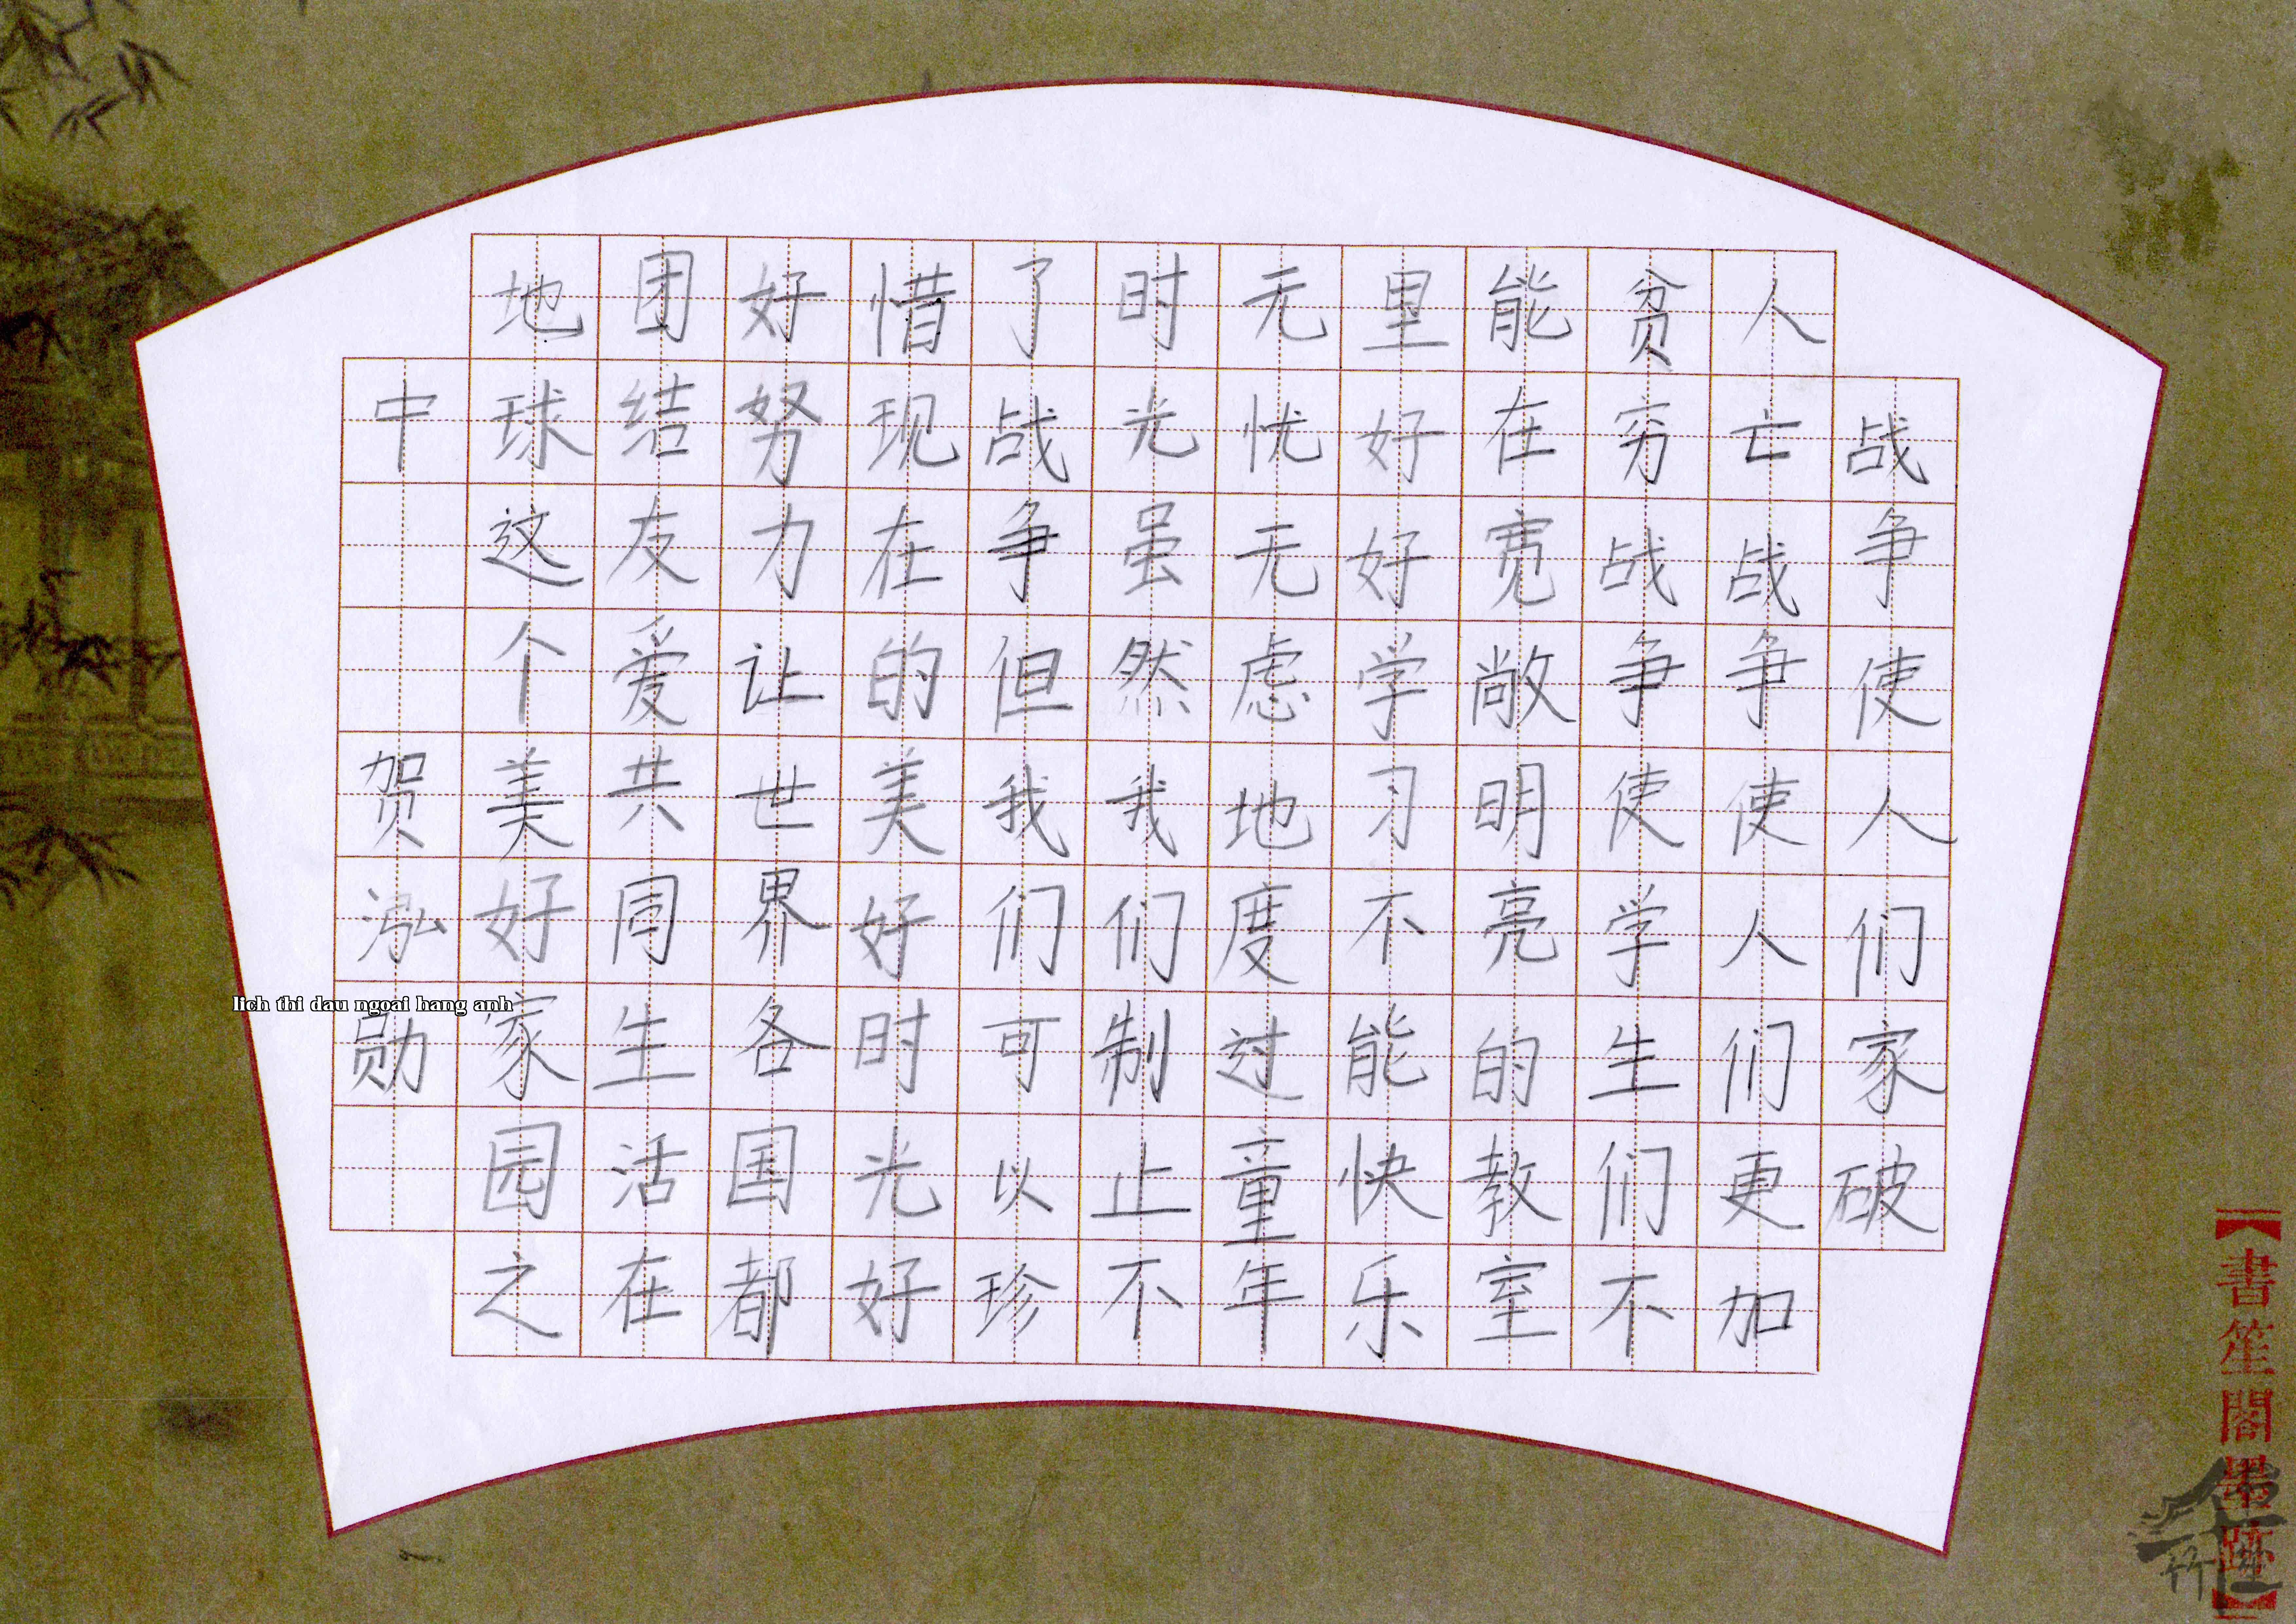 战争使人们家破
人亡战争使人们更加
贫穷战争使学生们不
能在宽敞明亮的教室
里好好学习不能快乐
无忧无虑地度过童年
时光虽然我们制止不
了战争但我们可以珍
惜现在的美好时光好
好努力让世界各国都
团结友爱共同生活在
地球这个美好家园之
中 贺泓勋
lich thi dau ngoai hang anh
【書笙閣墨跡】